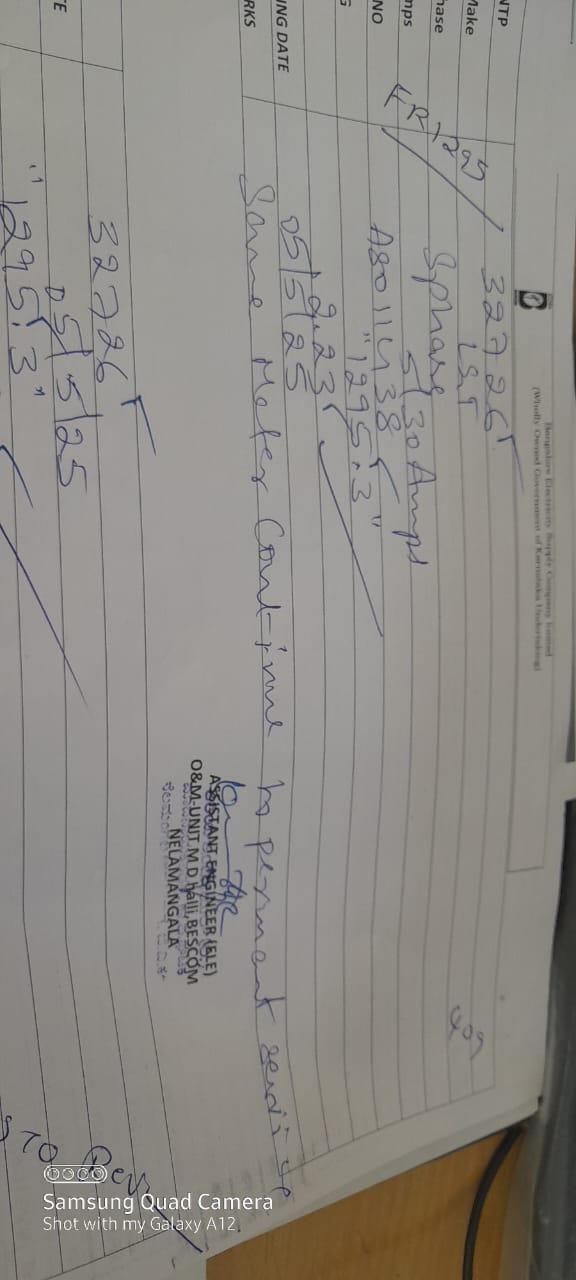 Bangalore Electricity Supply Company Limited
(Wholly Owned Government of Karnataka Undertaking)
NTP 32726
Make L&T
hase Sphase
mps 5/30 Amps
NO A8011438
G "1295.3"
2.23
ING DATE 05/5/25
RKS Same Meter Continue to perment service
ASSISTANT ENGINEER (ELE)
O&M-UNIT.M.D.halli,BESCOM
NELAMANGALA
32726
TE 05/5/25
"1295.3"
10
Samsung Quad Camera
Shot with my Galaxy A12